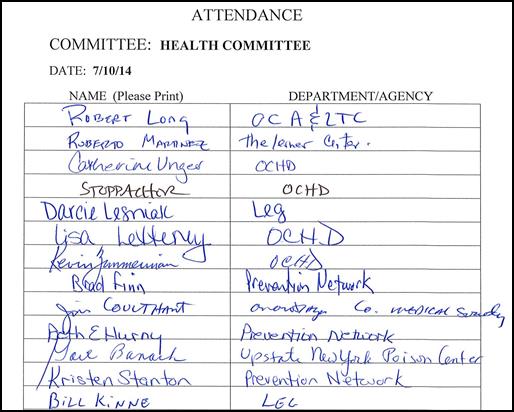 ATTENDANCE
COMMITTEE: HEALTH COMMITTEE
DATE: 7/10/14
NAME (Please Print) DEPARTMENT/AGENCY
ROBERT LONG OCA & LTC
ROBERTO MARTINEZ The Lerner Center.
Catherine Unger OCHD
OCHD
Darcie Lesniak Leg
Lisa Letteney OCHD
Kevin Zimmerman OCHD
Brad Finn Prevention Network
Jim COULTHART ONONDAGA Co. MEDICAL Society
Beth E Hurny Prevention Network
Gail Banach Upstate New York Poison Center
Kristen Stanton Prevention Network
BILL KINNE LEG